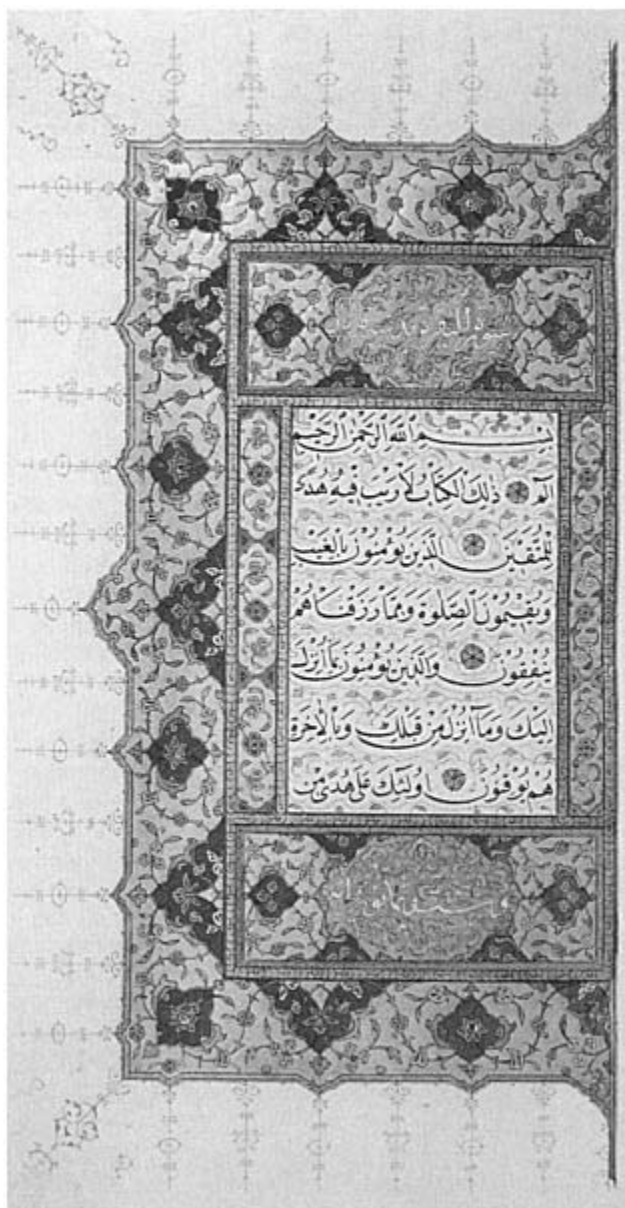 بِسْمِ اللهِ الرَّحْمٰنِ الرَّحِيْمِ
الٓمٓ ذٰلِكَ الْكِتَابُ لَا رَيْبَ فِيْهِ هُدًى
لِلْمُتَّقِيْنَ الَّذِيْنَ يُؤْمِنُوْنَ بِالْغَيْبِ
وَيُقِيْمُوْنَ الصَّلٰوةَ وَمِمَّا رَزَقْنَاهُمْ
يُنْفِقُوْنَ وَالَّذِيْنَ يُؤْمِنُوْنَ بِمَا اُنْزِلَ
اِلَيْكَ وَمَا اُنْزِلَ مِنْ قَبْلِكَ وَبِالْاٰخِرَةِ
هُمْ يُوْقِنُوْنَ اُولٰئِكَ عَلٰى هُدًى مِنْ